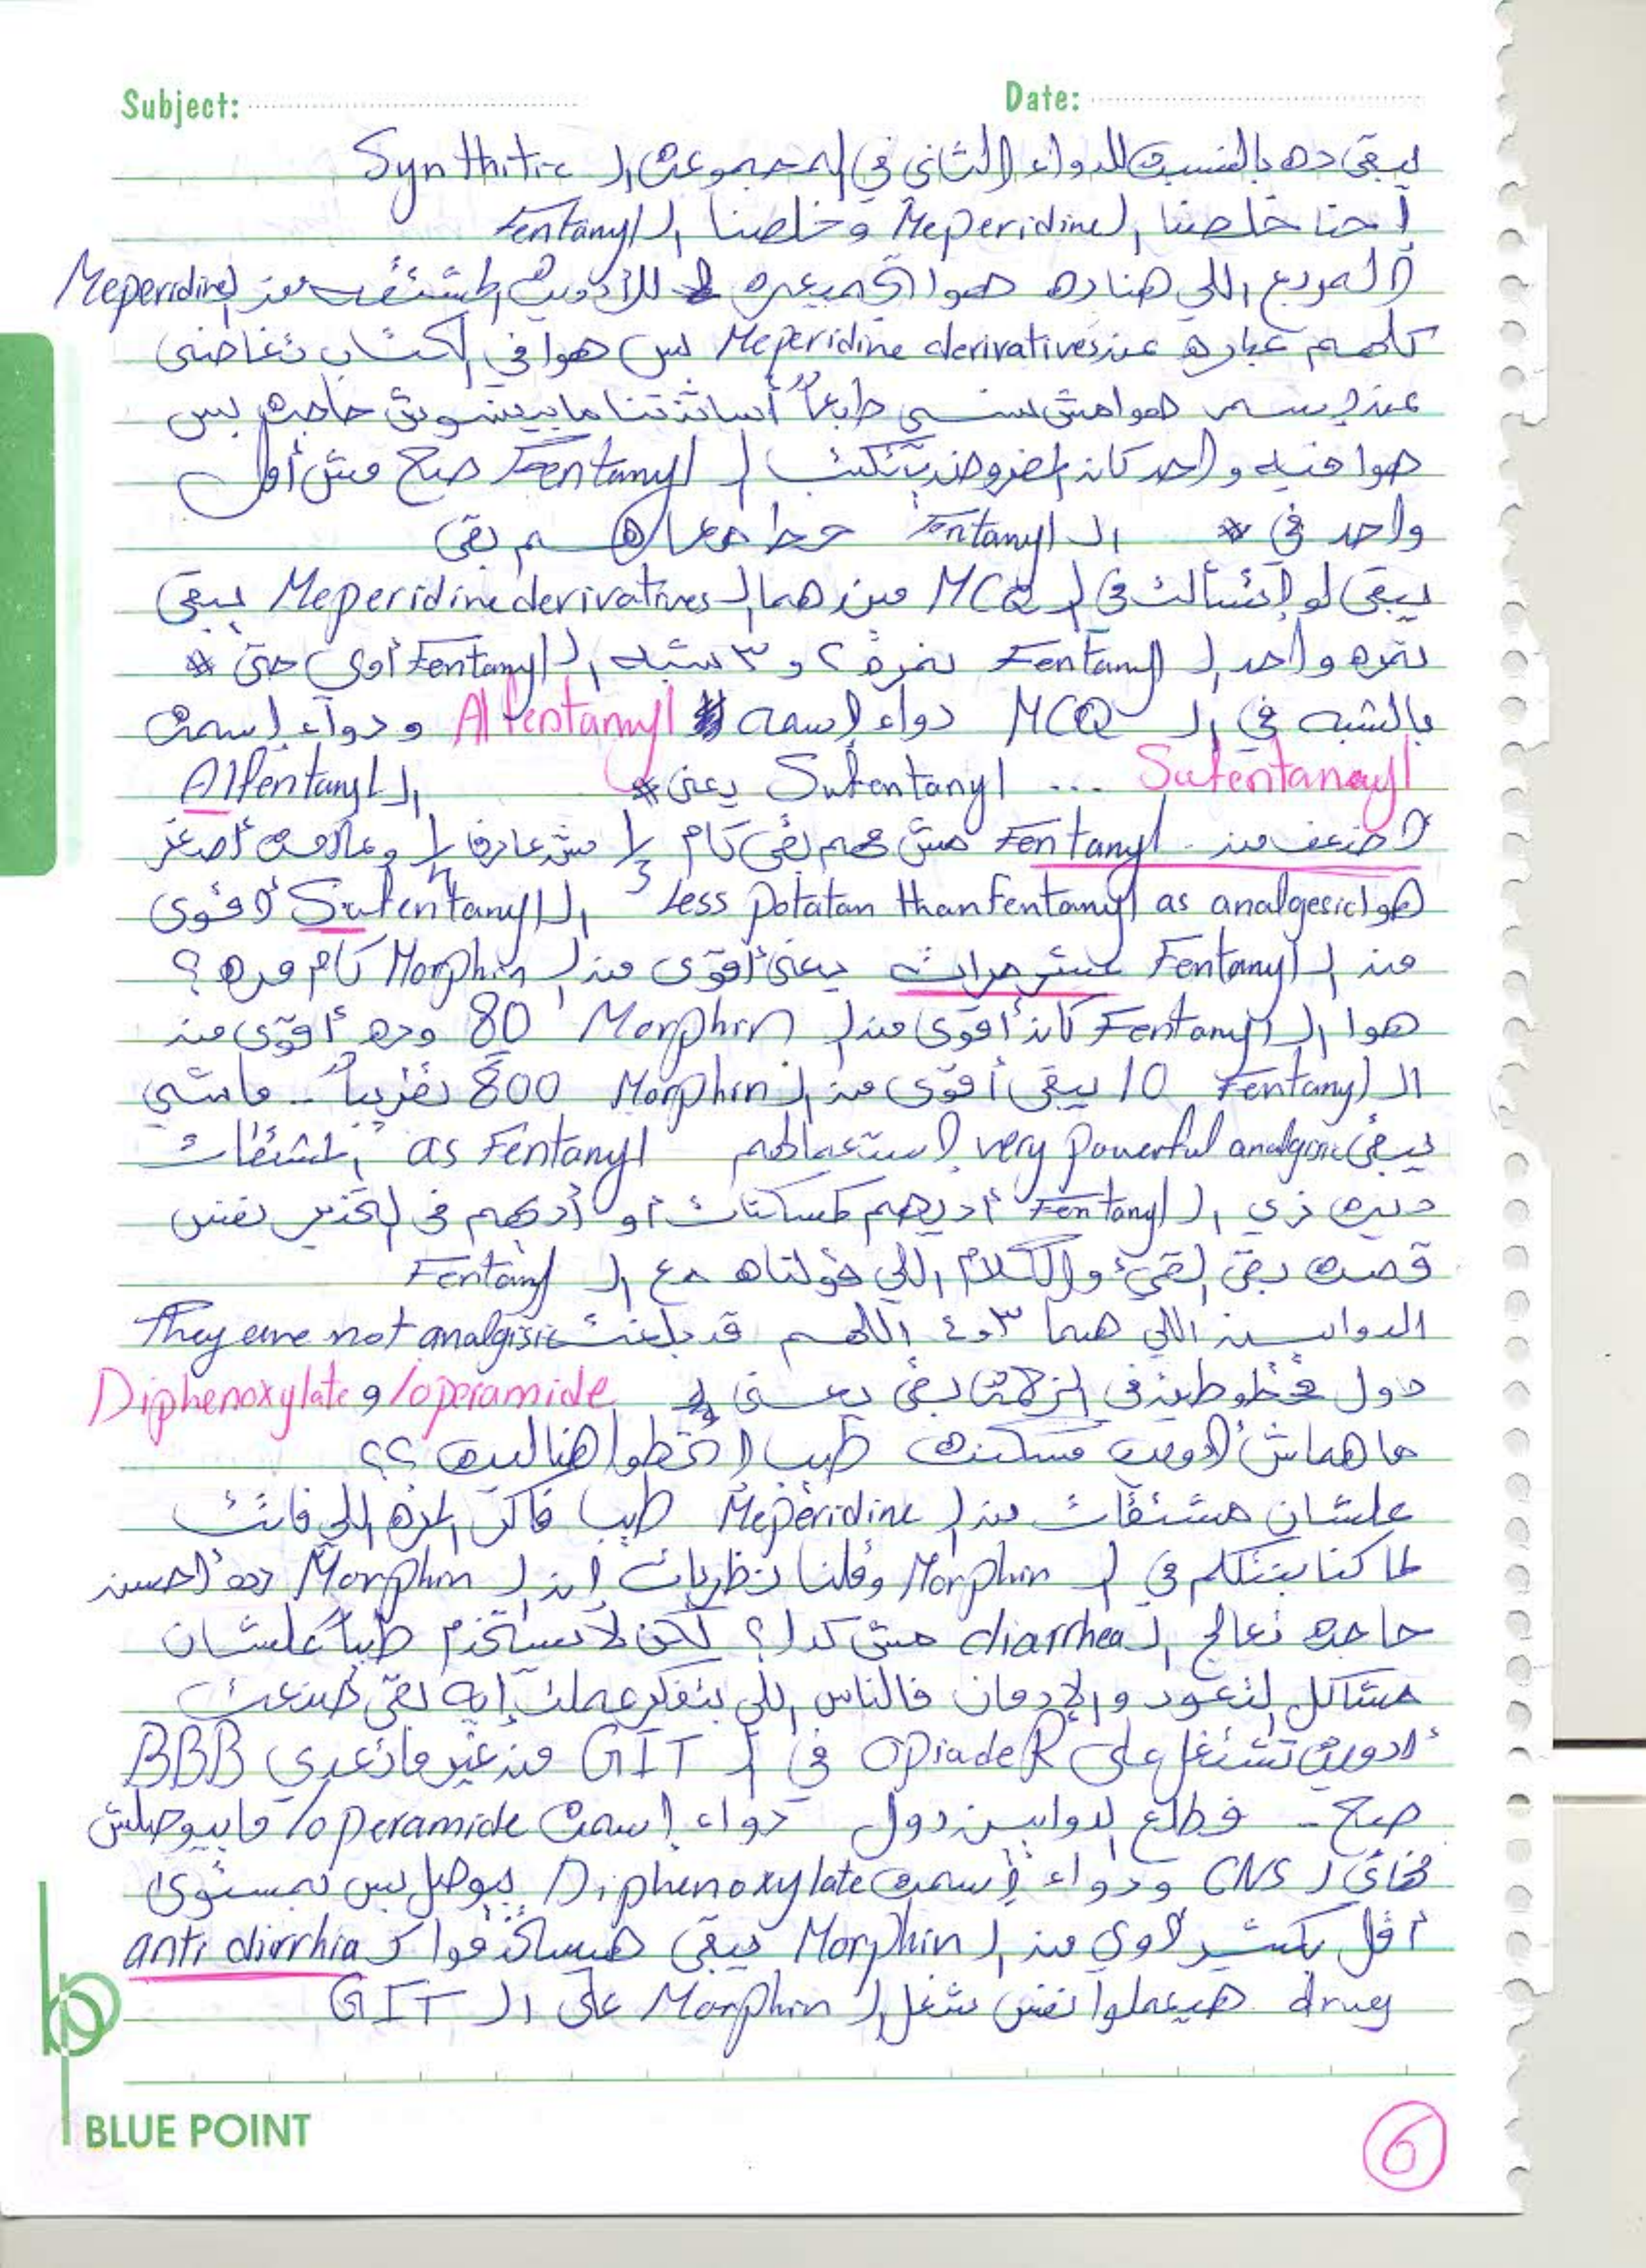 Subject:
Date:
يبقى ده بالنسبة للدواء الثاني في المجموعة الـ Synthitic
إحنا خلصنا الـ Meperidine وخلصنا الـ Fentanyl
المربع اللي هنا ده هوا تجميعه للأدوية المشتقه من الـ Meperidine
كلهم عباره عن Meperidine derivatives بس هوا في الكتاب تغاضى
عن إسم هوامش نسي طبعاً أساتذتنا مابينسوش حاجه بس
هوا فيه واحد كان المفروض يتكتب الـ Fentanyl صح مش أول
واحد في الـ Fentanyl حط معاهم بقى
يبقى لو إتسألت في الـ MCQ مين هما الـ Meperidine derivatives يبقى
نمره واحد الـ Fentanyl نمرة ٢ و ٣ شبه الـ Fentanyl أوي حتى
بالشبه في الـ MCQ دواء إسمه Alfentanyl ودواء إسمه
Sufentanayl ... Sufentanyl يعني الـ Alfentanyl
أضعف من Fentanyl مش مهم بقى كام ⅓ مش عارف ¼ وعلامة أصغر
هوا less potatan than fentanyl as analgesic الـ Sufentanyl أقوى
من الـ Fentanyl عشر مرات يعني أقوى من الـ Morphin كام مره ؟
هوا الـ Fentanyl كان أقوى من الـ Morphin 80 وده أقوى من
الـ Fentanyl 10 يبقى أقوى من الـ Morphin 800 تقريباً .. ماشي
يبقى very powerful analgisic إستعمالهم as Fentanyl المشتقات
ديه زي الـ Fentanyl أديهم كمسكنات أو أديهم في التخدير نفس
قصة بقى القيء والكلام اللي قولناه مع الـ Fentanyl
الدوايين اللي هما ٣ و ٤ اللهم قد بلغت They are not analgisic
دول محطوطين في الزحمة بقى يعني Diphenoxylate و loperamide
ما هماش أدوية مسكنه طيب إتحطوا هنا ليه ؟؟
علشان مشتقات من الـ Meperidine طيب فاكر المره اللي فاتت
لما كنا بنتكلم في الـ Morphin وقلنا نظريات إن الـ Morphin ده أحسن
حاجه تعالج الـ diarrhea مش كدا ؟ لكن لا يستخدم طبياً علشان
مشاكل التعود والإدمان فالناس اللي بتفكر عملت إيه بقى صنعت
أدوية تشتغل على Opiade R في الـ GIT من غير ما تعدي BBB
صح .. فطلع الدوايين دول دواء إسمه loperamide مابيوصلش
نهائي لـ CNS ودواء إسمه Diphenoxylate بيوصل بس بمستوى
أقل بكتير أوي من الـ Morphin يبقى هيساتخدموا كـ anti dirrhia
drug هيعملوا نفس شغل الـ Morphin على الـ GIT
BLUE POINT
6